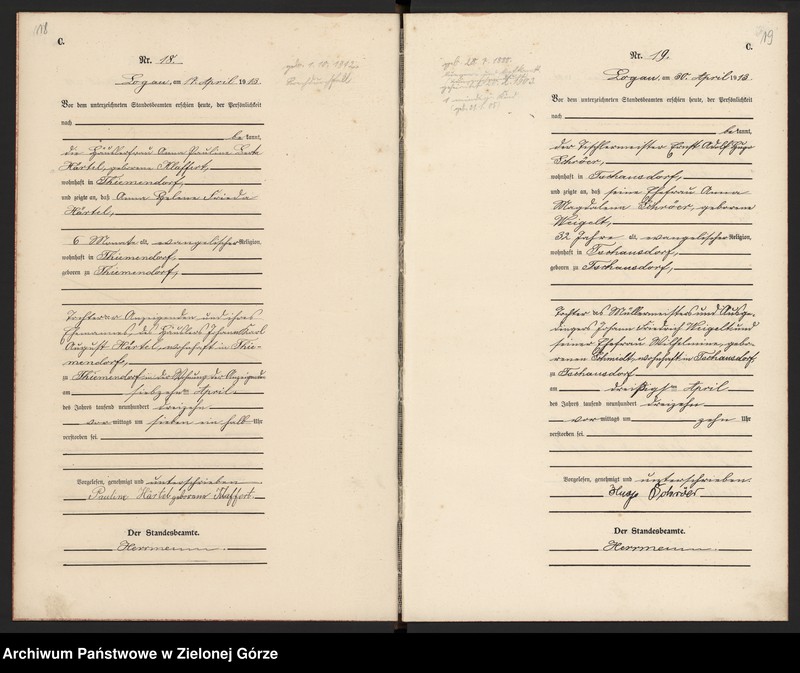 18
C.
Nr. 18.
Logau, am 17. April 1913.
Vor dem unterzeichneten Standesbeamten erschien heute, der Persönlichkeit
nach
bekannt,
die Häuslerfrau Anna Pauline Berta
Härtel, geborene Klaffert,
wohnhaft in Thiemendorf,
und zeigte an, daß Anna Helene Frieda
Härtel,
6 Monate alt, evangelischer Religion,
wohnhaft in Thiemendorf,
geboren zu Thiemendorf,
Tochter der Anzeigenden und ihres
Ehemannes, des Häuslers Johann Karl
August Härtel, wohnhaft in Thie-
mendorf,
zu Thiemendorf in der Wohnung der Anzeigenden
am siebzehnten April
des Jahres tausend neunhundert dreizehn
vormittags um sieben ein halb Uhr
verstorben sei.
Vorgelesen, genehmigt und unterschrieben
Pauline Härtel geborene Klaffert.
Der Standesbeamte.
Herrmann.
19
C.
Nr. 19.
Logau, am 30. April 1913.
Vor dem unterzeichneten Standesbeamten erschien heute, der Persönlichkeit
nach
bekannt,
der Tischlermeister Ernst Adolf Hugo
Schröer,
wohnhaft in Tschausdorf,
und zeigte an, daß seine Ehefrau Anna
Magdalena Schröer, geborene
Weigelt,
32 Jahre alt, evangelischer Religion,
wohnhaft in Tschausdorf,
geboren zu Tschausdorf,
Tochter des Müllermeisters und Ausge-
dingers Johann Friedrich Weigelt und
seiner Ehefrau Wilhelmine, gebo-
renen Schmidt, wohnhaft in Tschausdorf
zu Tschausdorf
am dreißigsten April
des Jahres tausend neunhundert dreizehn
vormittags um zehn Uhr
verstorben sei.
Vorgelesen, genehmigt und unterschrieben.
Hugo Schröer
Der Standesbeamte.
Herrmann.
Archiwum Państwowe w Zielonej Górze